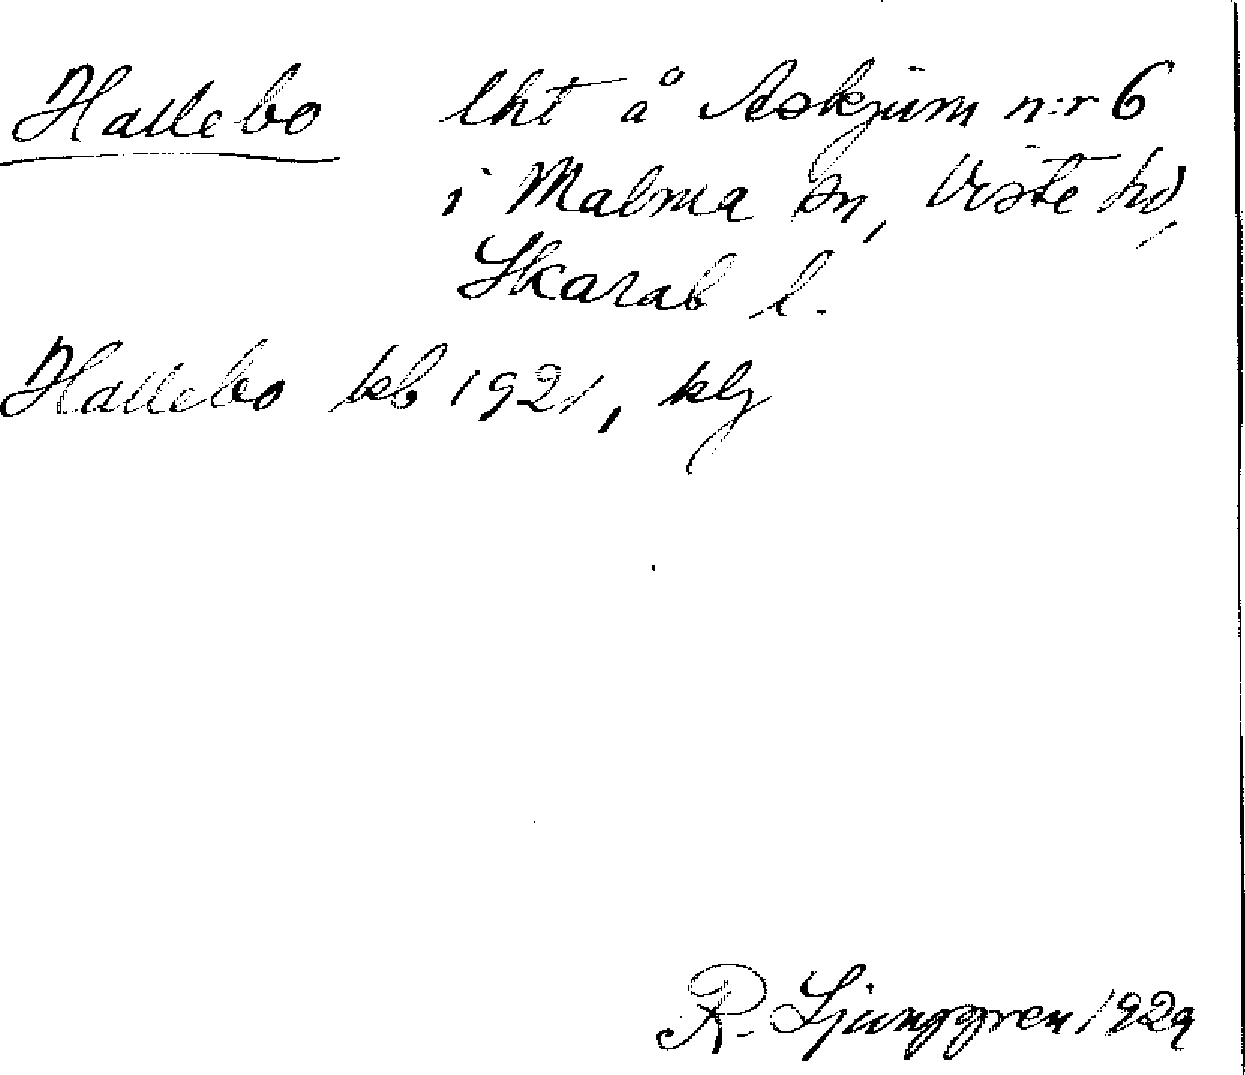 Hallebo lht å Askjum n:r 6
i Malma sn, Viste hd,
Skarab l.
Hallebo kb 1921, klg
R. Ljunggren 1929